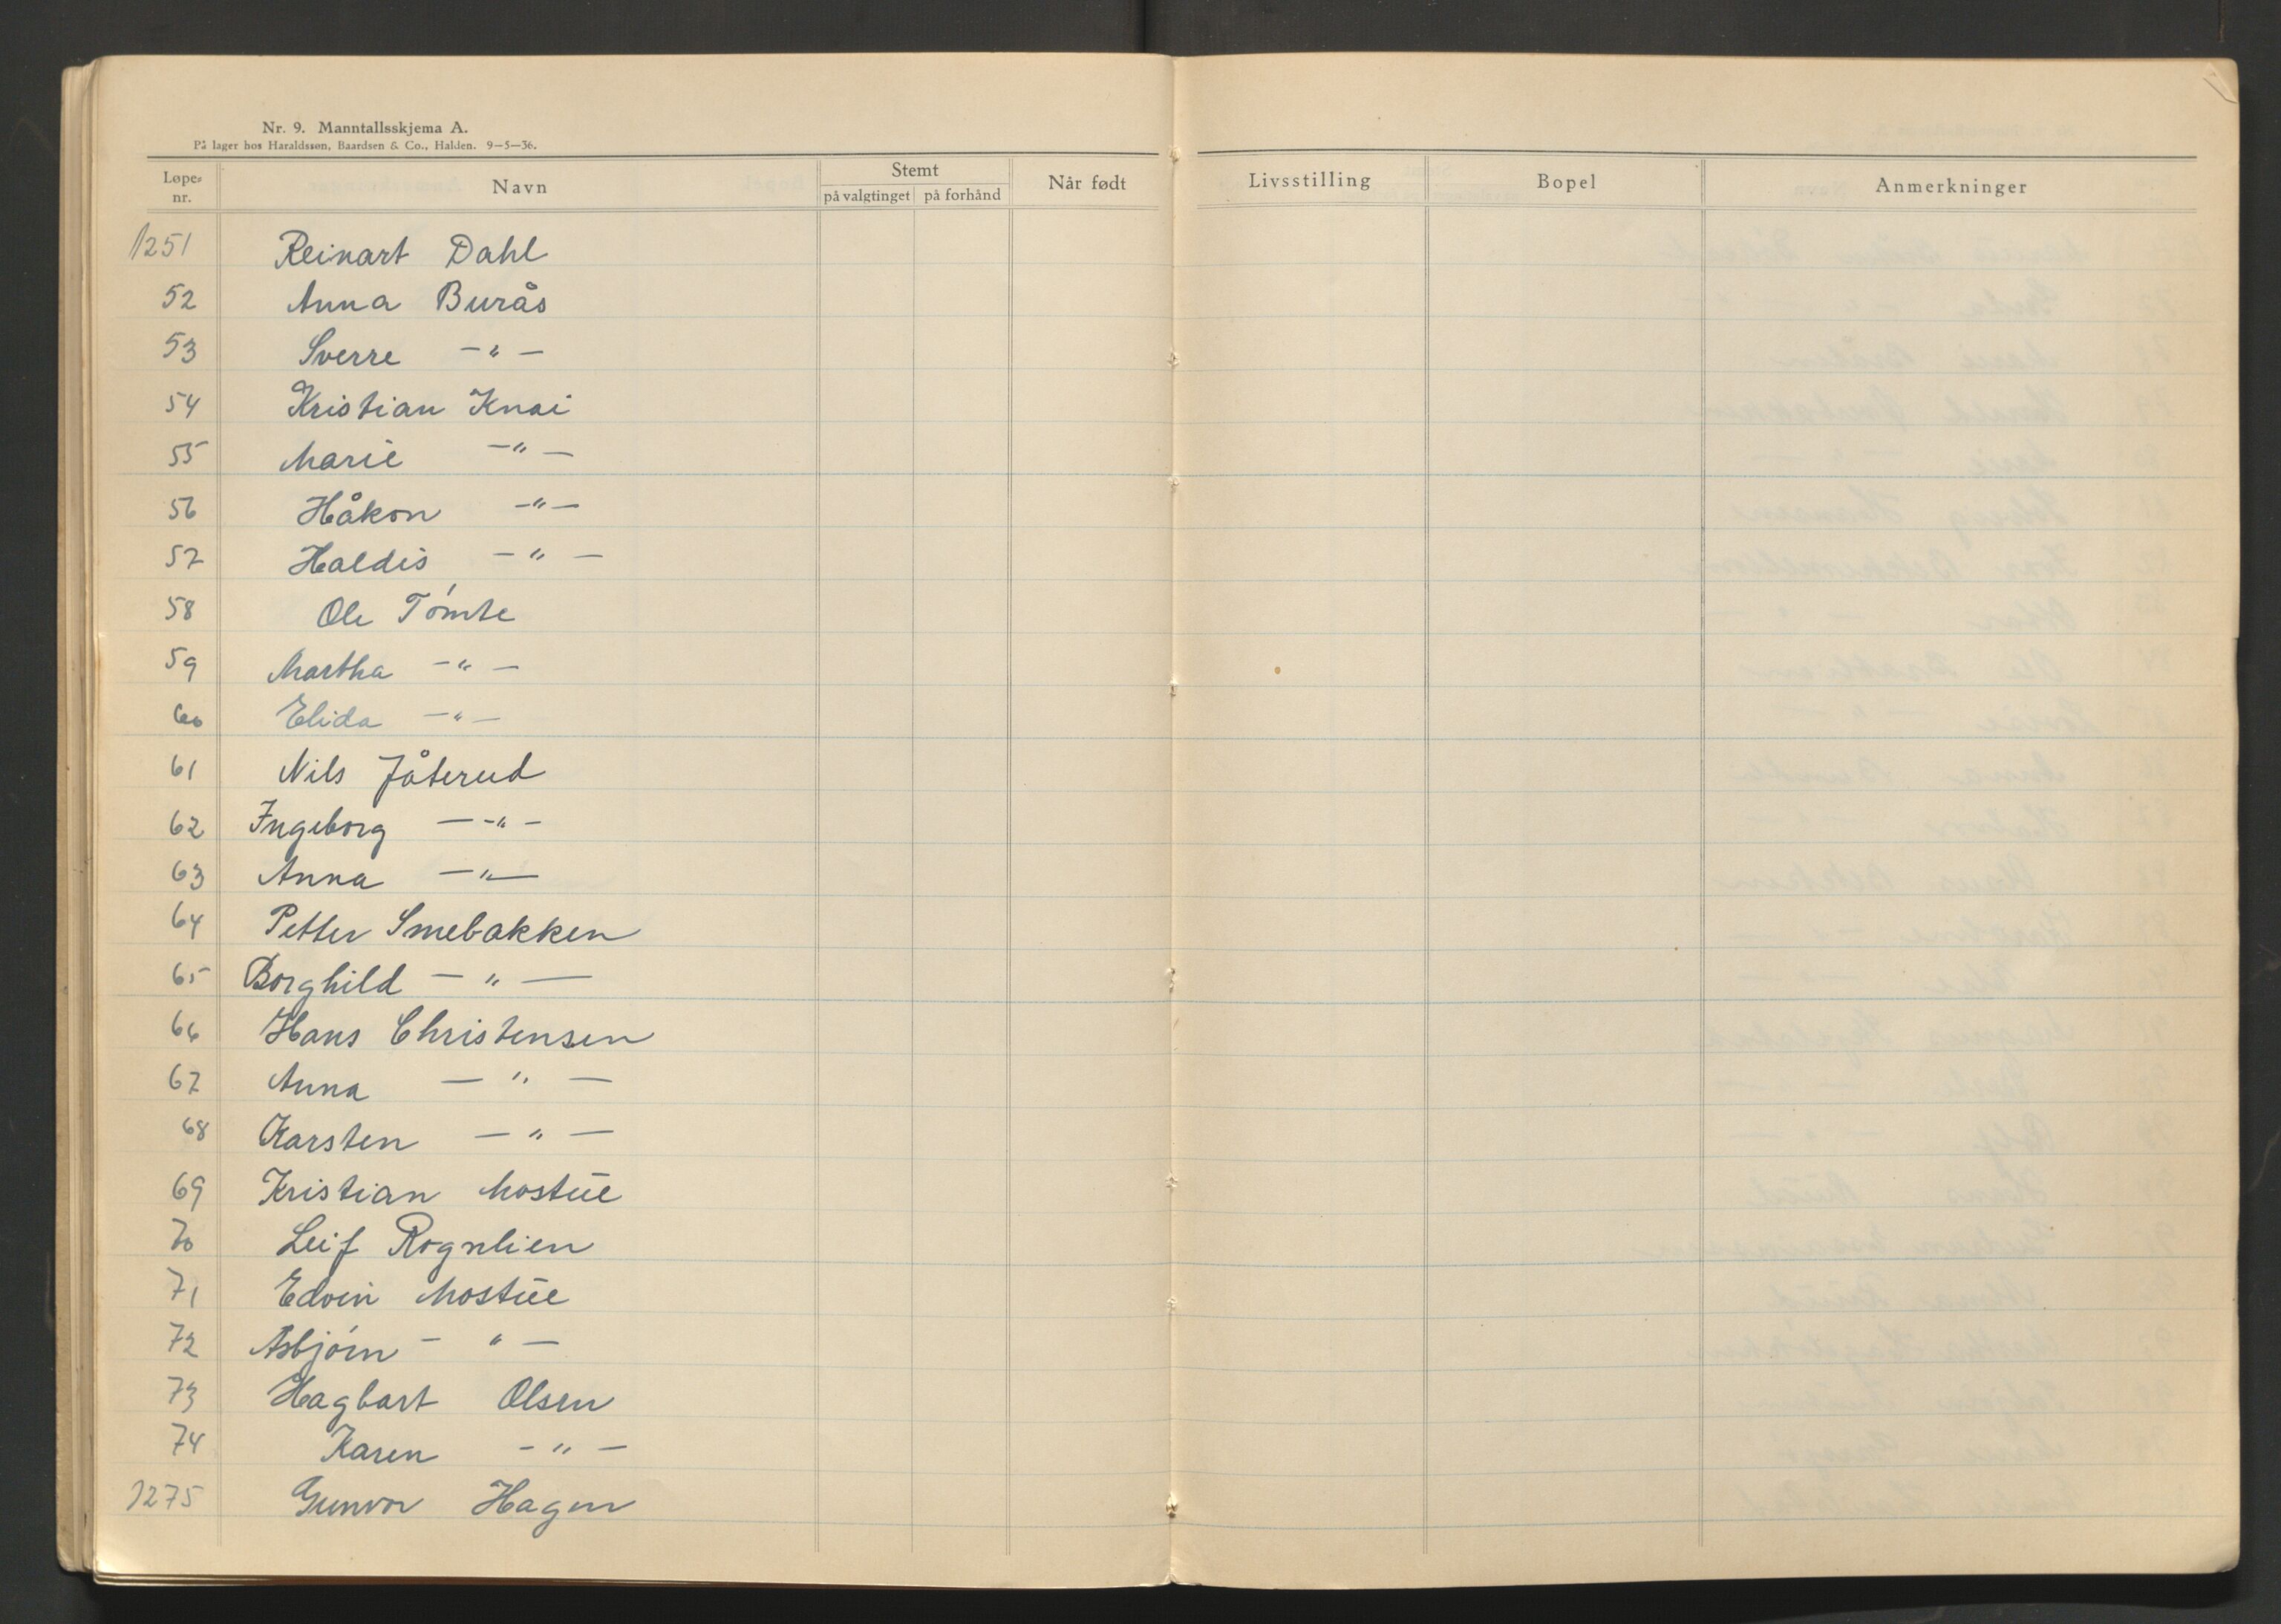 Nr. 9. Manntallsskjema A.
På lager hos Haraldssøn, Baardsen & Co., Halden. 9—5—36.
Løpe-nr. Navn Stemt på valgtinget på forhånd Når født Livsstilling Bopel Anmerkninger
1251 Reinart Dahl
52 Anna Burås
53 Sverre —"—
54 Kristian Knai
55 Marie —"—
56 Håkon —"—
57 Haldis —"—
58 Ole Tømte
59 Martha —"—
60 Elida —"—
61 Nils Jåterud
62 Ingeborg —"—
63 Anna —"—
64 Petter Smebakken
65 Borghild —"—
66 Hans Christensen
67 Anna —"—
68 Karsten —"—
69 Kristian Mostue
70 Leif Rognlien
71 Edvin Mostue
72 Asbjørn —"—
73 Hagbart Olsen
74 Karen —"—
1275 Gunvor Hagen